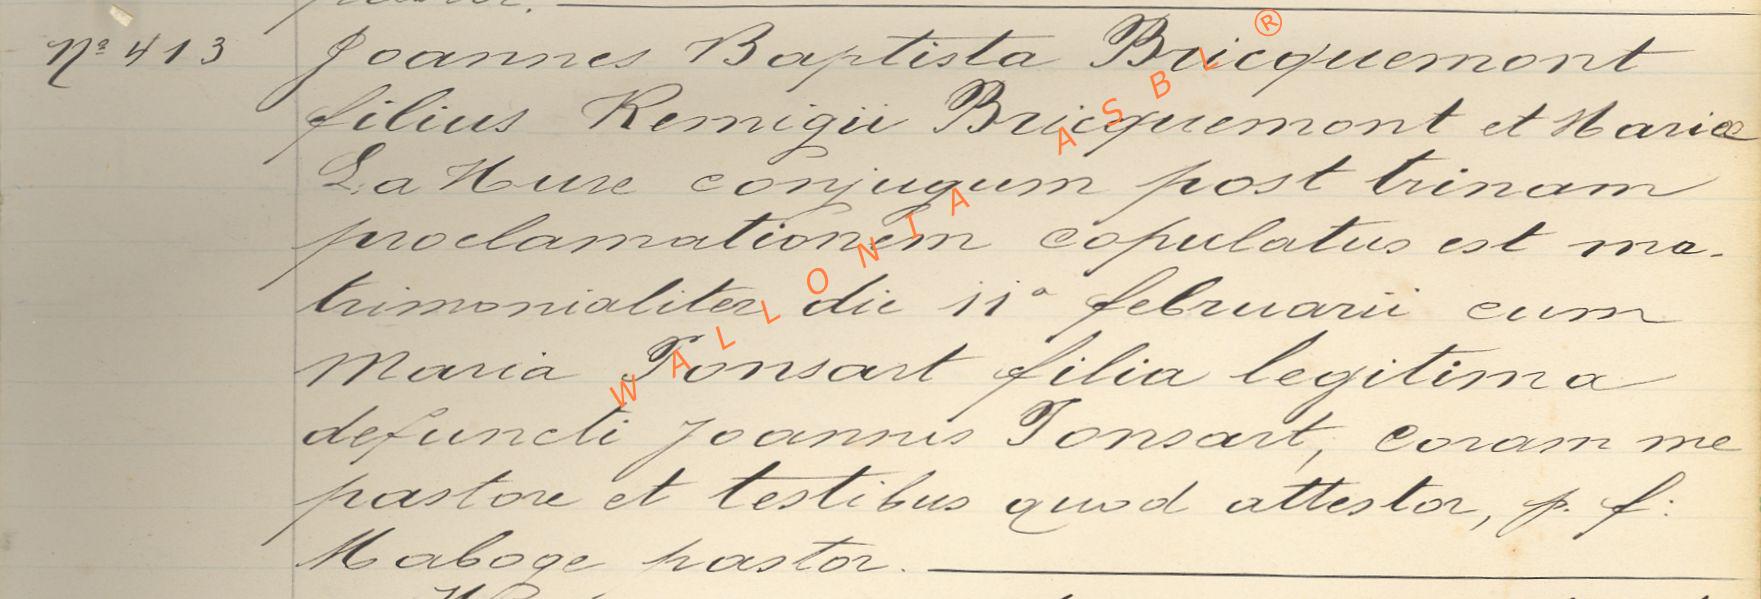 Nº 413
Joannes Baptista Bricquemont
filius Remigii Bricquemont et Mariæ
La Hure conjugum post trinam
proclamationem copulatus est ma-
trimonialiter die 11ª februarii cum
Maria Tonsart filia legitima
defuncti Joannis Tonsart, coram me
pastore et testibus quod attestor, p. f:
Maboge pastor.
WALLONIA ASBL ®